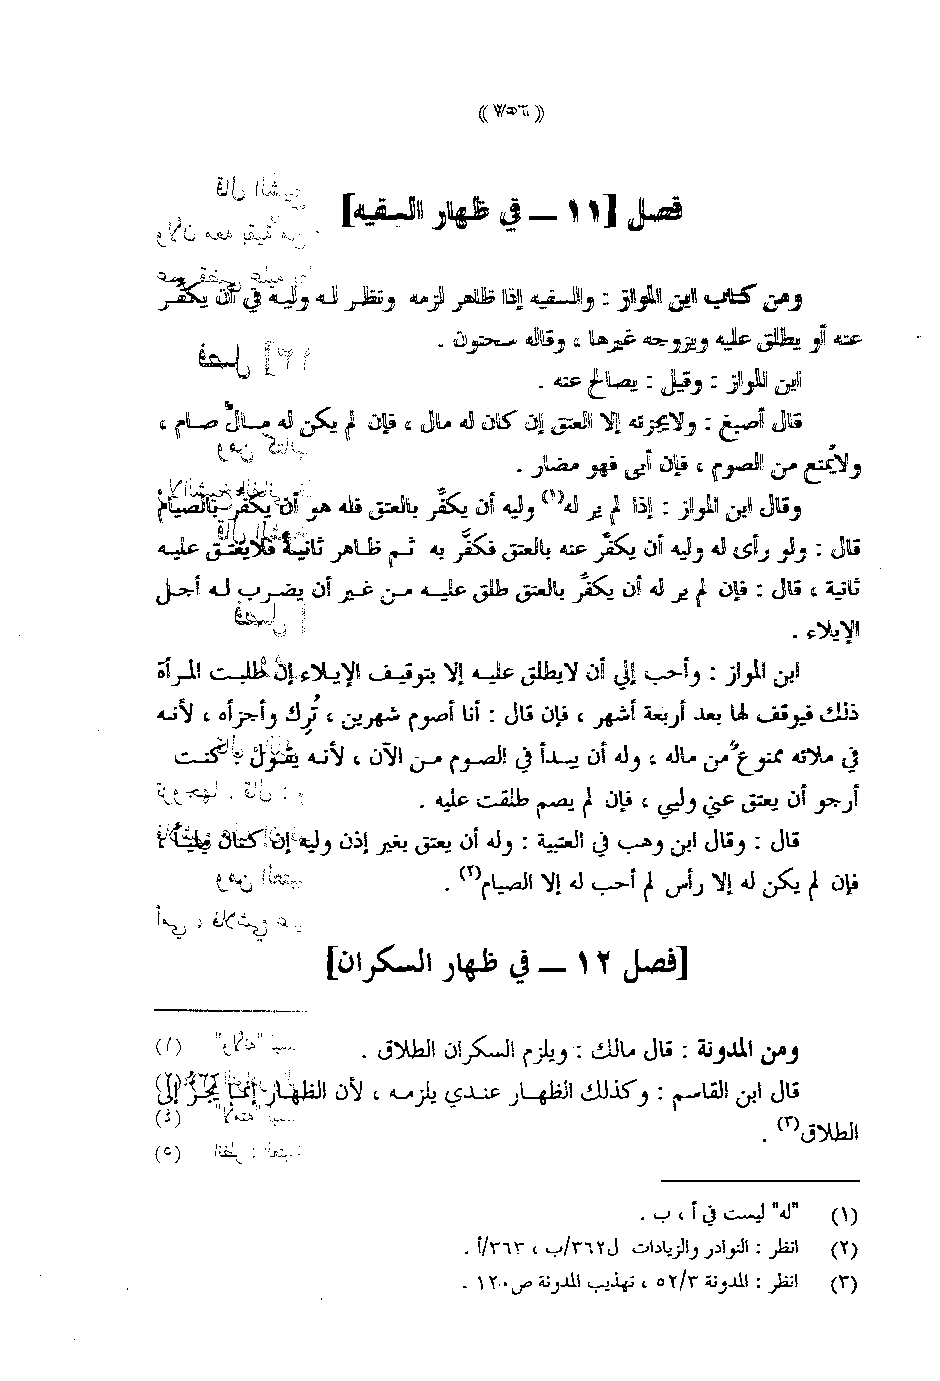 ((٧٥٦))
فصل [١١ ــ في ظهار السفيه]
ومن كتاب ابن المواز : والسفيه إذا ظاهر لزمه وتنظر له وليه في أن يكفّر
عنه أو يطلق عليه ويزوجه غيرها ، وقاله سحنون .
ابن المواز : وقيل : يصالح عنه .
قال أصبغ : ولايجزئه إلا العتق إن كان له مال ، فإن لم يكن له مالٌ صام ،
ولايُمنع من الصوم ، فإن أبى فهو مضار .
وقال ابن المواز : إذا لم ير له(١) وليه أن يكفّر بالعتق فله هو أن يكفّر بالصيام
قال : ولو رأى له وليه أن يكفّر عنه بالعتق فكفّر به ثم ظاهر ثانيةً فلايعتق عليه
ثانية ، قال : فإن لم ير له أن يكفّر بالعتق طلق عليه من غير أن يضرب له أجل
الإيلاء .
ابن المواز : وأحب إلي أن لايطلق عليه إلا بتوقيف الإيلاء إن طلبت المرأة
ذلك فيوقف لها بعد أربعة أشهر ، فإن قال : أنا أصوم شهرين ، تُرِك وأجزأه ، لأنه
في ملائه ممنوعٌ من ماله ، وله أن يبدأ في الصوم من الآن ، لأنه يقول : كنت
أرجو أن يعتق عني وليي ، فإن لم يصم طلقت عليه .
قال : وقال ابن وهب في العتبية : وله أن يعتق بغير إذن وليه إن كان مليئاً
فإن لم يكن له إلا رأس لم أحب له إلا الصيام(٢) .
[فصل ١٢ ــ في ظهار السكران]
ومن المدونة : قال مالك : ويلزم السكران الطلاق .
قال ابن القاسم : وكذلك الظهار عندي يلزمه ، لأن الظهار إنما يجرّ إلى
الطلاق(٣) .
(١) "له" ليست في أ ، ب .
(٢) انظر : النوادر والزيادات ل٣٦٢/ب ، ٣٦٣/أ .
(٣) انظر : المدونة ٥٢/٣ ، تهذيب المدونة ص١٢٠ .